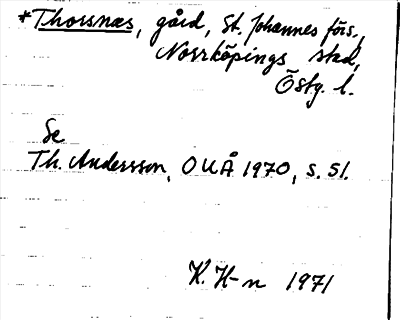 *Thorsnæs, gård, St. Johannes förs.,
Norrköpings stad,
Östg. l.
Se
Th. Andersson, OUÅ 1970, s. 51.
K. H-n 1971